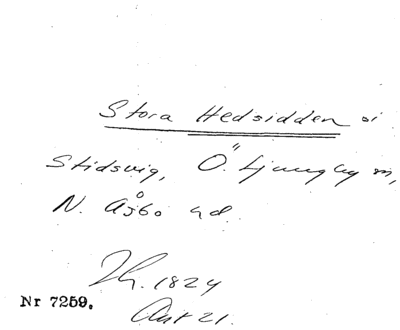 Stora Hedsidden i
Stidsvig, Ö. Ljungby sn,
N. Åsbo hd.
1824
Nr 7259.
21.